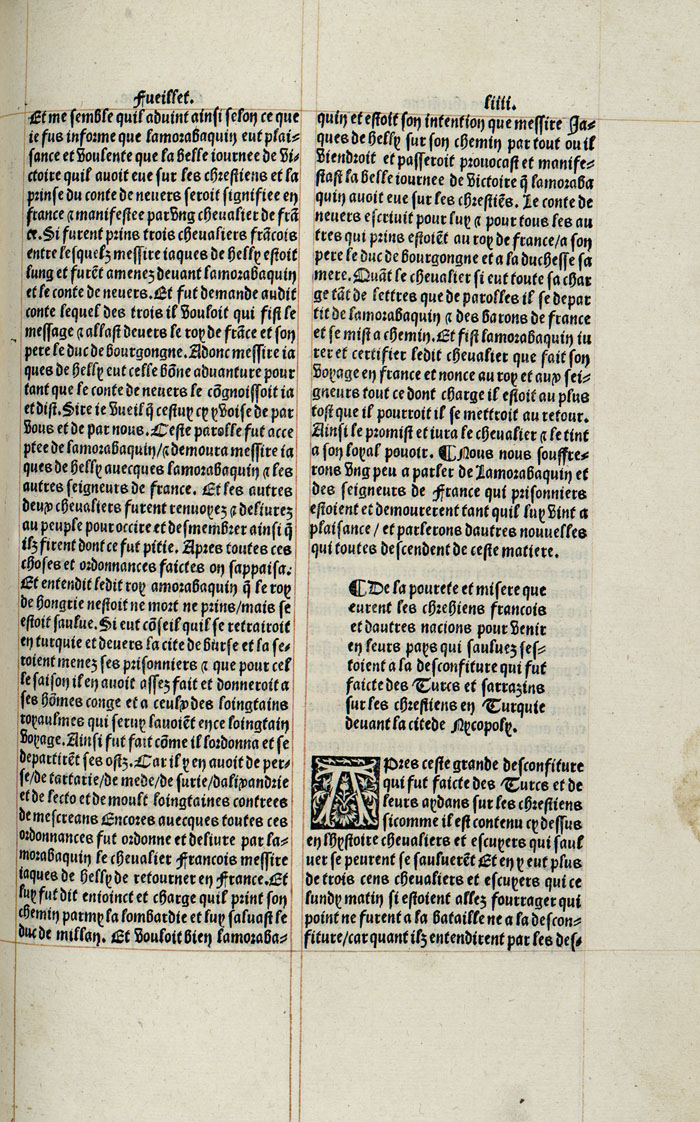 Fueillet.
liiii.
Et me semble quil aduint ainsi selon ce que
ie fus informe que lamorabaquin eut plai-
sance et voulente que la belle iournee de vi-
ctoire quil auoit eue sur les chrestiens et la
prinse du conte de neuers seroit signifiee en
france ⁊ manifestee par vng cheualier de frā
ce. Si furent prins trois cheualiers frācois
entre lesquelz messire iaques de helly estoit
lung et furēt amenez deuant lamorabaquin
et le conte de neuers. Et fut demande audit
conte lequel des trois il vouloit qui fist le
message ⁊ allast deuers le roy de frāce et son
pere le duc de bourgongne. Adonc messire ia
ques de helly eut celle bōne aduanture pour
tant que le conte de neuers le cōgnoissoit ia
et dist. Sire ie vueil q̄ cestuy cy y voise de par
vous et de par nous. Ceste parolle fut acce
ptee de lamorabaquin/⁊ demoura messire ia
ques de helly auecques lamorabaquin ⁊ les
autres seigneurs de france. Et les autres
deux cheualiers furent renuoyez ⁊ deliurez
au peuple pour occire et desmembrer ainsi q̄
ilz firent dont ce fut pitie. Apres toutes ces
choses et ordonnances faictes on sappaisa.
Et entendit ledit roy amorabaquin q̄ le roy
de hongrie nestoit ne mort ne prins/mais se
estoit saulue. Si eut cōseil quil se retrairoit
en turquie et deuers la cite de burse et la se-
roient menez ses prisonniers ⁊ que pour cel
le saison il en auoit assez fait et donneroit a
ses hōmes conge et a ceulx des loingtains
royaulmes qui seruy lauoiēt en ce loingtain
voyage. Ainsi fut fait cōme il lordonna et se
departirēt ses ostz. Car il y en auoit de per-
se/de tartarie/de mede/de surie/dalixandrie
et de lecto et de moult loingtaines contrees
de mescreans Encores auecques toutes ces
ordonnances fut ordonne et deliure par la-
morabaquin le cheualier Francois messire
iaques de helly de retourner en France. Et
luy fut dit enioinct et charge quil print son
chemin parmy la lombardie et luy saluast le
duc de millan. Et vouloit bien lamoraba-
quin et estoit son intention que messire Ja-
ques de helly sur son chemin par tout ou il
viendroit et passeroit prouocast et manife-
stast la belle iournee de victoire q̄ lamoraba
quin auoit eue sur les chrestiēs. Le conte de
neuers escriuit pour luy ⁊ pour tous les au
tres qui prins estoiēt au roy de france/a son
pere le duc de bourgongne et a la duchesse sa
mere. Quāt le cheualier si eut toute sa char
ge tāt de lettres que de parolles il se depar
tit de lamorabaquin ⁊ des barons de france
et se mist a chemin. Et fist lamorabaquin iu
rer et certifier ledit cheualier que fait son
voyage en france et nonce au roy et aux sei-
gneurs tout ce dont charge il estoit au plus
tost que il pourroit il se mettroit au retour.
Ainsi le promist et iura le cheualier ⁊ le tint
a son loyal pouoir. ¶ Nous nous souffre-
rons vng peu a parler de Lamorabaquin et
des seigneurs de France qui prisonniers
estoient et demourerent tant quil luy vint a
plaisance / et parlerons dautres nouuelles
qui toutes descendent de ceste matiere.
¶ De la pourete et misere que
eurent les chrehiens francois
et dautres nacions pour venir
en leurs pays qui sauluez ses-
toient a la desconfiture qui fut
faicte des Turcs et sarrazins
sur les chrestiens en Turquie
deuant la citede Nycopoly.
APres ceste grande desconfiture
qui fut faicte des Turcs et de
leurs aydans sur les chrestiens
sicomme il est contenu cy dessus
en lhystoire cheualiers et escuyers qui saul
uer se peurent se saulucrēt Et en y eut plus
de trois cens cheualiers et escuyers qui ce
lundy matin si estoient allez fourrager qui
point ne furent a la bataille ne a la descon-
fiture/car quant ilz entendirent par les des-